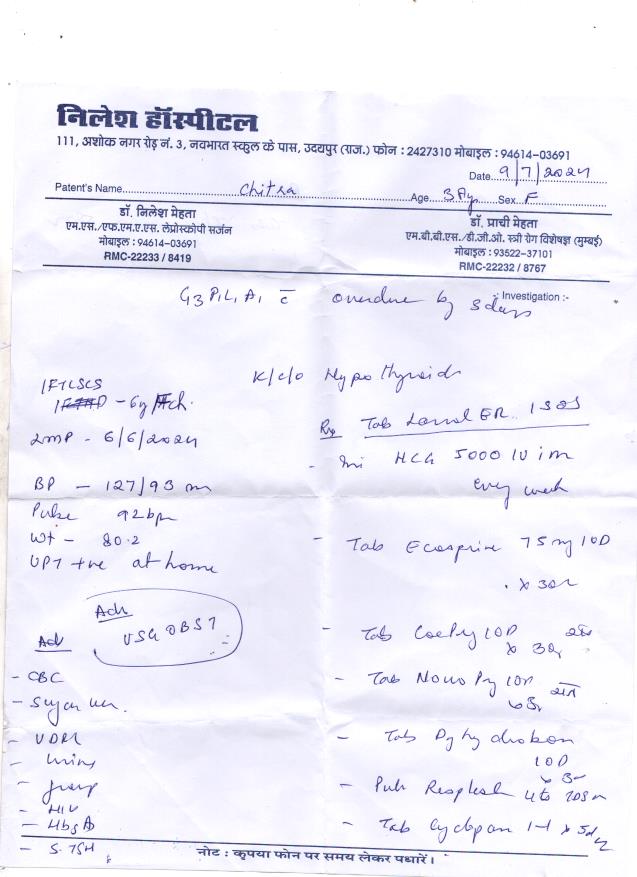 निलेश हॉस्पीटल
111, अशोक नगर रोड़ नं. 3, नवभारत स्कुल के पास, उदयपुर (राज.) फोन : 2427310 मोबाइल : 94614-03691
Date 9/7/2024
Patent's Name Chitra Age Sex F
डॉ. निलेश मेहता
एम.एस./एफ.एम.ए.एस. लेप्रोस्कोपी सर्जन
मोबाइल : 94614-03691
RMC-22233 / 8419
डॉ. प्राची मेहता
एम.बी.बी.एस./डी.जी.ओ. स्त्री रोग विशेषज्ञ (मुम्बई)
मोबाइल : 93522-37101
RMC-22232 / 8767
:- Investigation :-
G3 P1 L1 A1 c̄ overdue by 3 days
K/c/o Hypothyroid
1FTLSCS
- 6y ch.
LMP - 6/6/2024
BP - 127/93 m
Pulse 92bpm
Wt - 80.2
UPT +ve at home
Adv
USG OBST
Adv
- CBC
- Sugar
- VDRL
- Urine
- group
- HIV
- HbsAg
- S. TSH
Rx Tab ER
- Inj HCG 5000 IU im
every week
- Tab Ecosprin 75mg 1OD
x 30
- Tab 1OD
x 30
- Tab 1OD
- Tab Dydroboon
1OD
- 4
- Tab Cyclopam 1-1 x 5d
नोट : कृपया फोन पर समय लेकर पधारें।